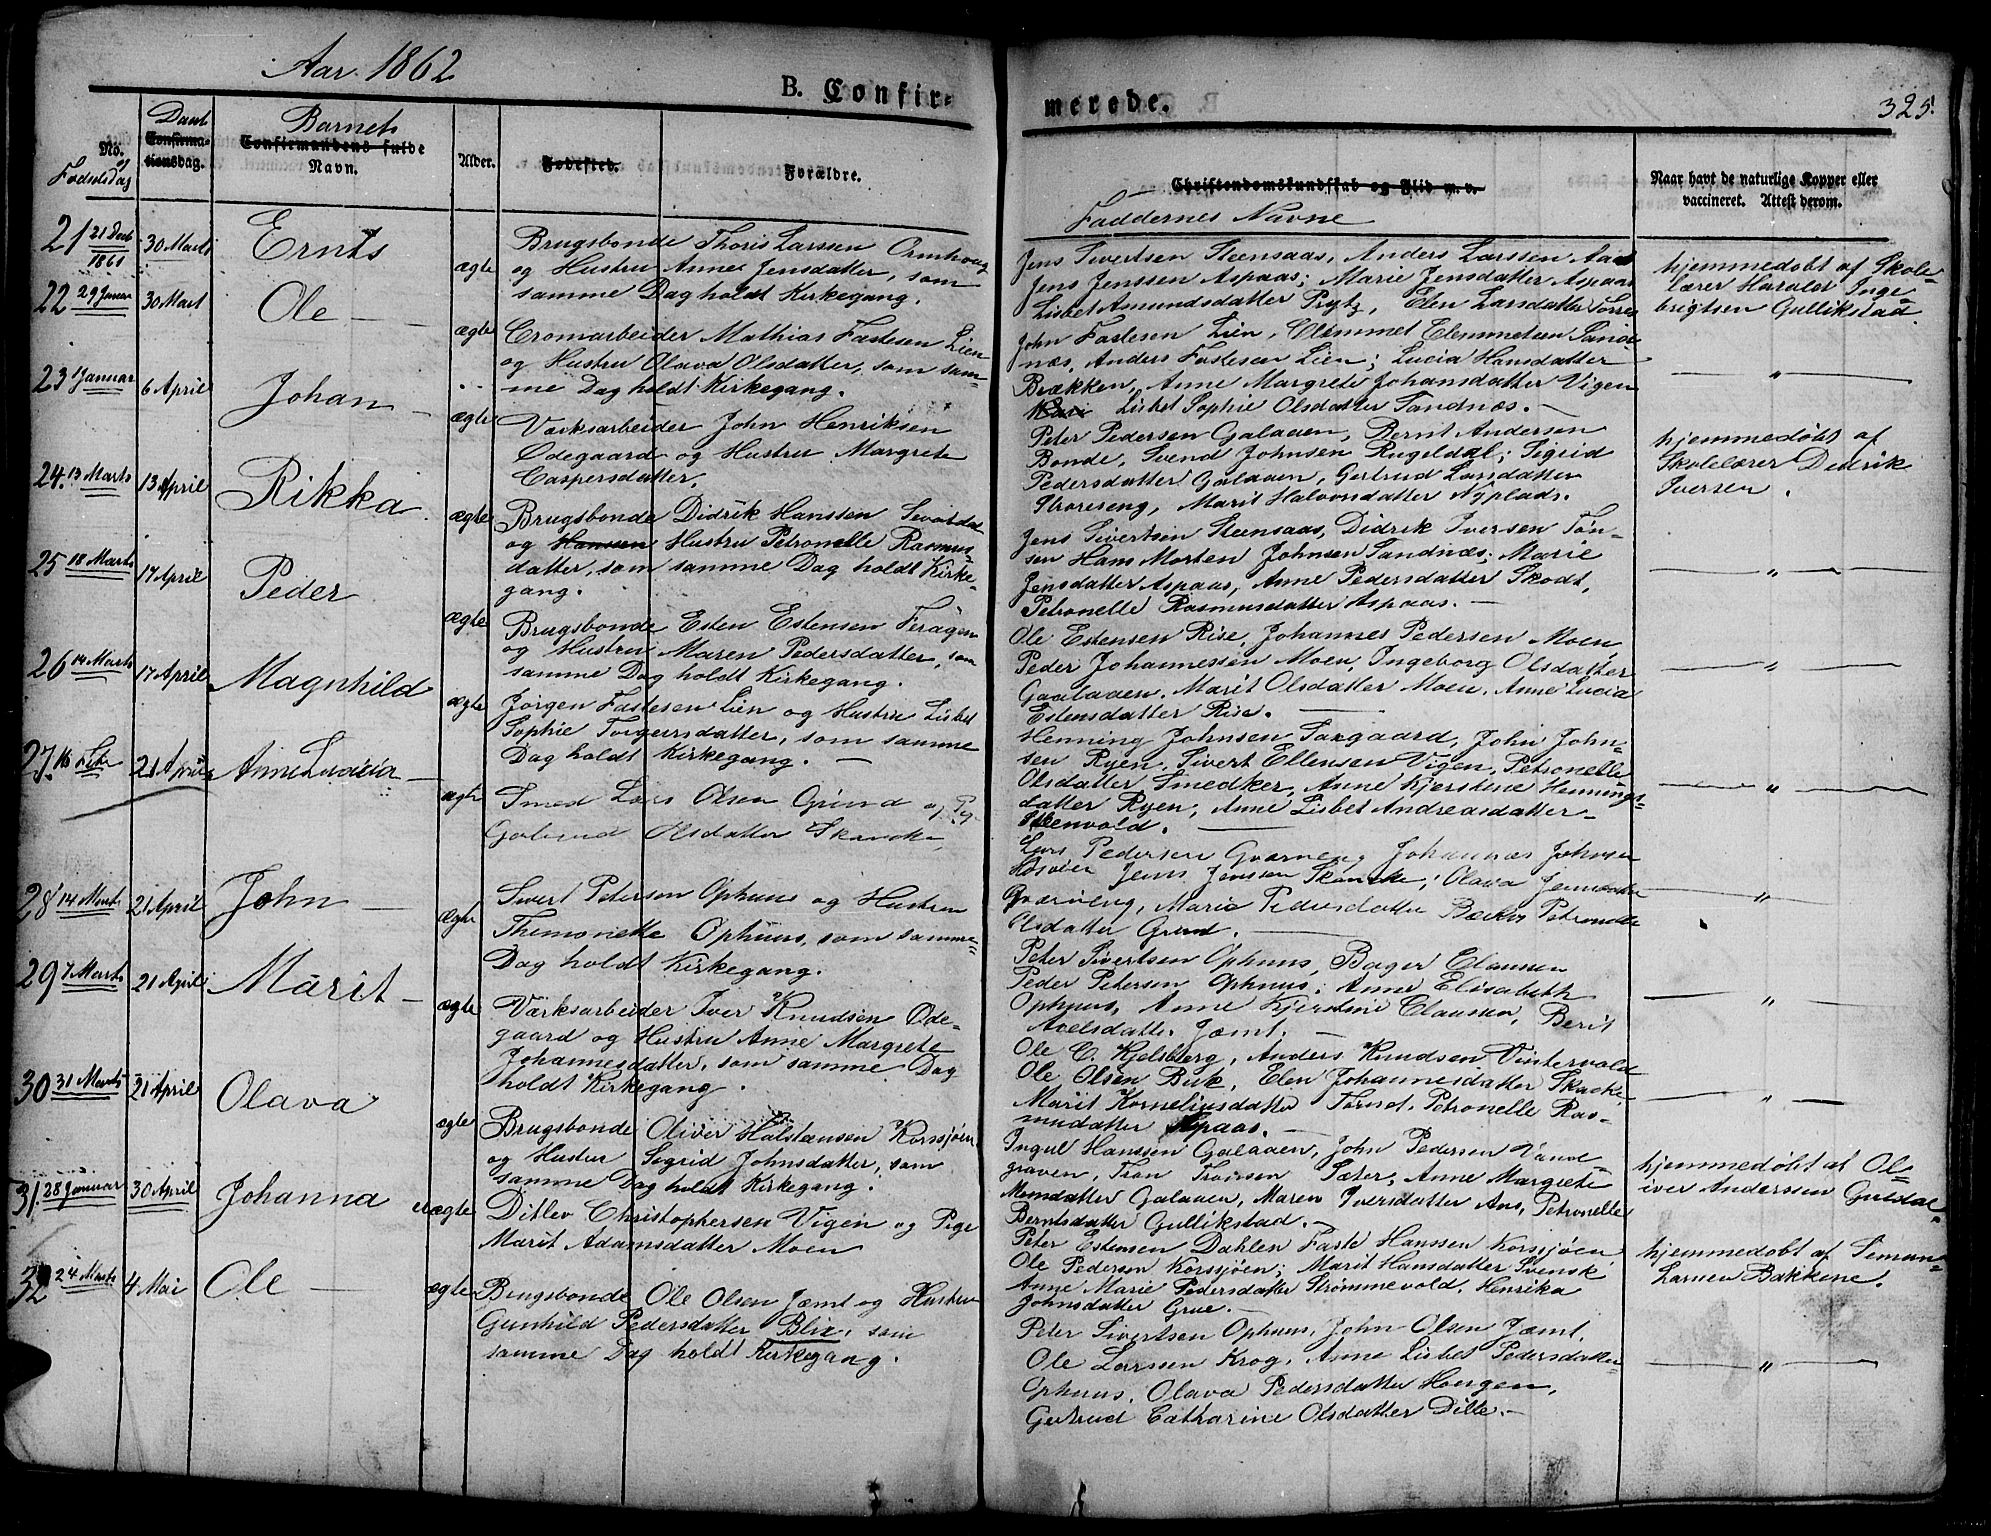 Aar 1862
B. Confir-
merede.
325.
No. og Fødselsdag
Daab
Confirmationsdag.
Barnets
Confirmandens fulde
Navn.
Alder.
Fødested.
Forældre.
Christendomskundskab og Flid m. v.
Faddernes Navne
Naar havt de naturlige Kopper eller
vaccineret. Attest derom.
21 21 Decb 1861
30 Marts
Ernts
ægte
Brugsbonde Thoris Larsen Ormhoug
og Hustru Anne Jensdatter, som
samme Dag holdt Kirkegang.
Jens Sivertsen Steensaas, Anders Larssen Aas
Jens Jenssen Aspaas; Marie Jensdatter Aspaas
Lisbet Amundsdatter Prytz, Elen Larsdatter
hjemmedøbt af Skole-
lærer Harald Inge-
brigtsen Gullikstad.
22 29 Januar
30 Mart
Ole
ægte
Cromarbeider Mathias Fastesen Lien
og Hustru Olava Olsdatter, som sam-
me Dag holdt Kirkegang.
John Fastesen Lien, Clemmet Clemmetsen Sand-
næs, Anders Fastesen Lien; Lucia Hansdatter
Brækken, Anne Margrete Johansdatter Vigen
Lisbet Sophie Olsdatter Sandnæs.
23 1 Januar
6 April
Johan
ægte
Værksarbeider John Henriksen
Ødegaard og Hustru Margrete
Caspersdatter.
Peter Pedersen Galaaen, Bernt Andersen
Bonde, Svend Johnsen Rugeldal; Sigrid
Pedersdatter Galaaen, Gertrud Larsdatter
Marit Halvorsdatter Nyplads.
hjemmedøbt af
Skolelærer Dedrik
Iversen.
24. 13 Marts
13 April
Rikka
ægte
Brugsbonde Didrik Hanssen
og Hansen Hustru Petronelle Rasmus-
datter, som samme Dag holdt Kirke-
gang.
Jens Sivertsen Steensaas, Didrik Iversen Tøn-
sen Hans Morten Johnsen Sandnæs; Marie
Jensdatter Aspaas, Anne Pedersdatter Skodt,
Petronelle Rasmusdatter Aspaas.
25 18 Marts
17 April
Peder
ægte
Brugsbonde Esten Estensen Feragen
og Hustru Maren Pedersdatter, som
samme Dag holdt Kirkegang.
Ole Estensen Rise, Johannes Pedersen Moen,
Peder Johannessen Moen, Ingeborg Olsdatter
Gaalaaen, Marit Olsdatter Moen, Anne Lucia
Estensdatter Rise.
26 14 Marts
17 April
Magnhild
ægte
Jørgen Fastesen Lien og Hustru Lisbet
Sophie Torgersdatter, som samme
Dag holdt Kirkegang.
Henning Johnsen Torgaard, John John-
sen Ryen, Sivert Ellensen Vigen, Petronelle
Olsdatter Smedker, Anne Kjerstine Hennings-
datter Ryen, Anne Lisbet Andreasdatter
Stenvold.
27 16
21 April
Anne Lucia
ægte
Smed Lars Olsen Grind og
Olsdatter Skancke
Lars Pedersen Grærneng Johannes Johnsen
Jens Jenssen Skancke; Olava
Grærneng, Marie Pedersdatter Petronelle
Olsdatter Grind.
28 14 Marts
21 April
John
ægte
Sivert Petersen Ophuus og Hustru
Themonette Ophuus, som samme
Dag holdt Kirkegang.
Peter Sivertsen Ophuus, Bager Claussen
Peder Petersen Ophuus; Anne Elisabeth
Ophuus, Anne Kjerstine Claussen, Berit
Axelsdatter Jæmt.
29 7 Marts
21 April
Marit
ægte
Værksarbeider Iver Knudsen Øde-
gaard og Hustru Anne Margrete
Johannesdatter, som samme Dag
holdt Kirkegang.
Ole C. Kjelsberg, Anders Knudsen Vintervold
Ole Olsen Buk, Elen Johannesdatter Skacke
Marit Korneliusdatter Petronelle Ras-
musdatter Aspaas.
30 31 Marts
21 April
Olava
ægte
Brugsbonde Oliver Halstensen Korssjøen
og Hustru Sigrid Johnsdatter, som
samme Dag holdt Kirkegang.
Ingul Hanssen Galaaen, John Pedersen Vand-
graven, Tron Tronsen Sæter, Anne Margrete
Monsdatter Galaaen, Maren Iversdatter Aas, Petronelle
Berntsdatter Gullikstad.
31. 28 Januar
30 April
Johanna
uægte
Ditlev Christophersen Vigen og Pige
Marit Adamsdatter Moen
Peter Estensen Dahlen Faste Hanssen Korssjøen
Ole Pedersen Korssjøen; Marit Hansdatter Svensk
Anne Marie Pedersdatter Strømmevold, Henrika
Johnsdatter Grue.
hjemmedøbt af Ol-
iver Anderssen Guldal.
32 24 Marts
4 Mai
Ole
ægte
Brugsbonde Ole Olsen Jæmt og Hustru
Gunhild Pedersdatter Blix, som
samme Dag holdt Kirkegang.
Peter Sivertsen Ophuus, John Olsen Jæmt,
Ole Larssen Krog, Anne Lisbet Pedersdatter
Ophuus, Olava Pedersdatter Hougen,
Gertrud Catharine Olsdatter Dille.
hjemmedøbt af Simon
Larsen Bakkene.